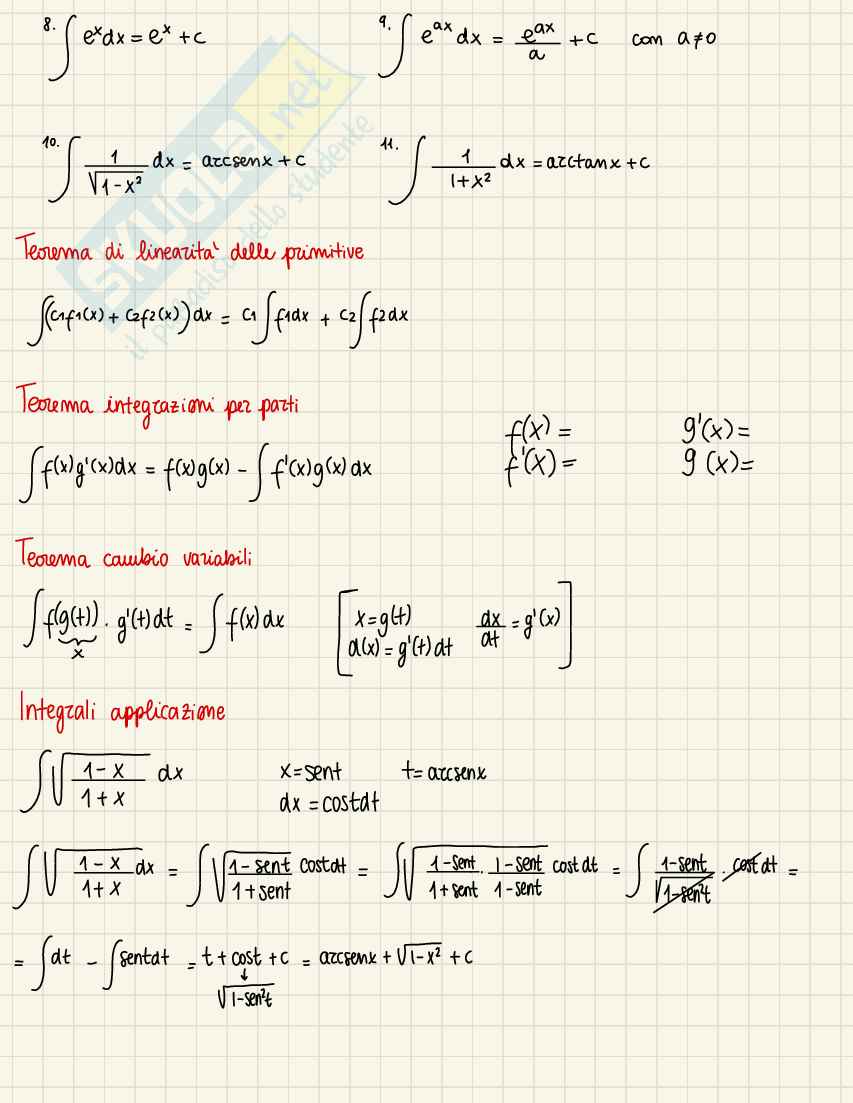 8. ∫ eˣdx = eˣ + c    9. ∫ e^(ax) dx = e^(ax)/a + c   con a≠0
10. ∫ 1/√(1-x²) dx = arcsenx + c    11. ∫ 1/(1+x²) dx = arctanx + c
Teorema di linearita' delle primitive
∫(c₁f₁(x) + c₂f₂(x))dx = c₁∫f₁dx + c₂∫f₂dx
Teorema integrazioni per parti
f(x) =    g'(x)=
∫f(x)g'(x)dx = f(x)g(x) - ∫f'(x)g(x)dx    f'(x) =    g(x)=
Teorema cambio variabili
∫f(g(t))·g'(t)dt = ∫f(x)dx    [x=g(t)    dx/dt = g'(x)]
x    d(x) = g'(t)dt
Integrali applicazione
∫√((1-x)/(1+x)) dx    x=sent    t=arcsenx
dx = costdt
∫√((1-x)/(1+x)) dx = ∫√((1-sent)/(1+sent)) costdt = ∫√((1-sent)/(1+sent) · (1-sent)/(1-sent)) costdt = ∫ (1-sent)/√(1-sen²t) · costdt =
= ∫dt - ∫sentdt = t + cost + c = arcsenx + √(1-x²) + c
↓
√(1-sen²t)
SKUOLA.net
il paradiso dello studente